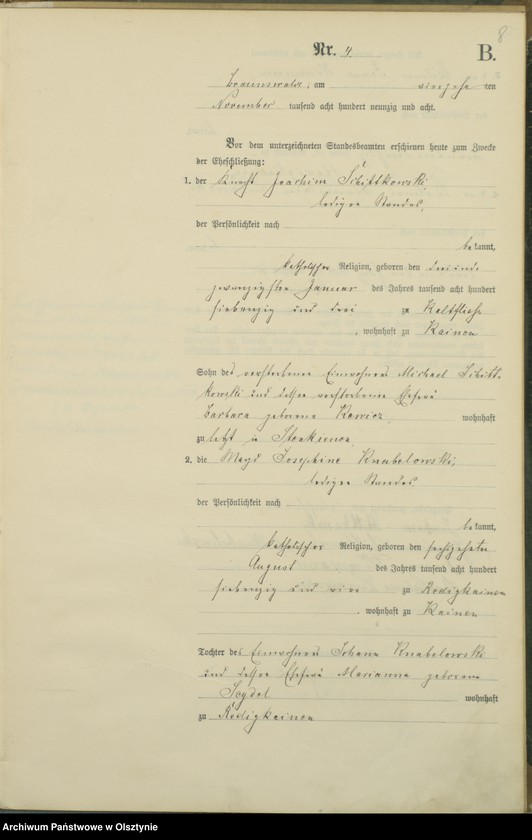 8
Nr. 4 B.
Braunswalde, am vierzehn ten
November tausend acht hundert neunzig und acht.
Vor dem unterzeichneten Standesbeamten erschienen heute zum Zwecke
der Eheschließung:
1. der Knecht Joachim Schittkowski,
lediger Standes,
der Persönlichkeit nach
bekannt,
katholischer Religion, geboren den drei und
zwanzigsten Januar des Jahres tausend acht hundert
siebenzig und drei zu Kaltfließ
, wohnhaft zu Kainen
Sohn des verstorbenen Einwohners Michael Schitt-
kowski und dessen verstorbene Ehefrau
Barbara geborene Rewicz wohnhaft
zuletzt in Stenkienen
2. die Magd Josephine Knabelowski,
lediger Standes
der Persönlichkeit nach
bekannt,
katholischer Religion, geboren den sechszehnten
August des Jahres tausend acht hundert
siebenzig und vier zu Redigkainen
, wohnhaft zu Kainen
Tochter des Einwohners Johann Knabelowski
und dessen Ehefrau Marianna geborene
Seydel wohnhaft
zu Redigkainen
Archiwum Państwowe w Olsztynie